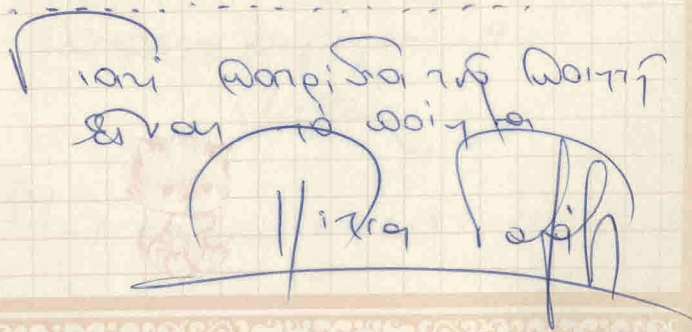 Γιατί πατρίδα του ποιητή
είναι το ποίημα
Πίτσα Γαλάζη